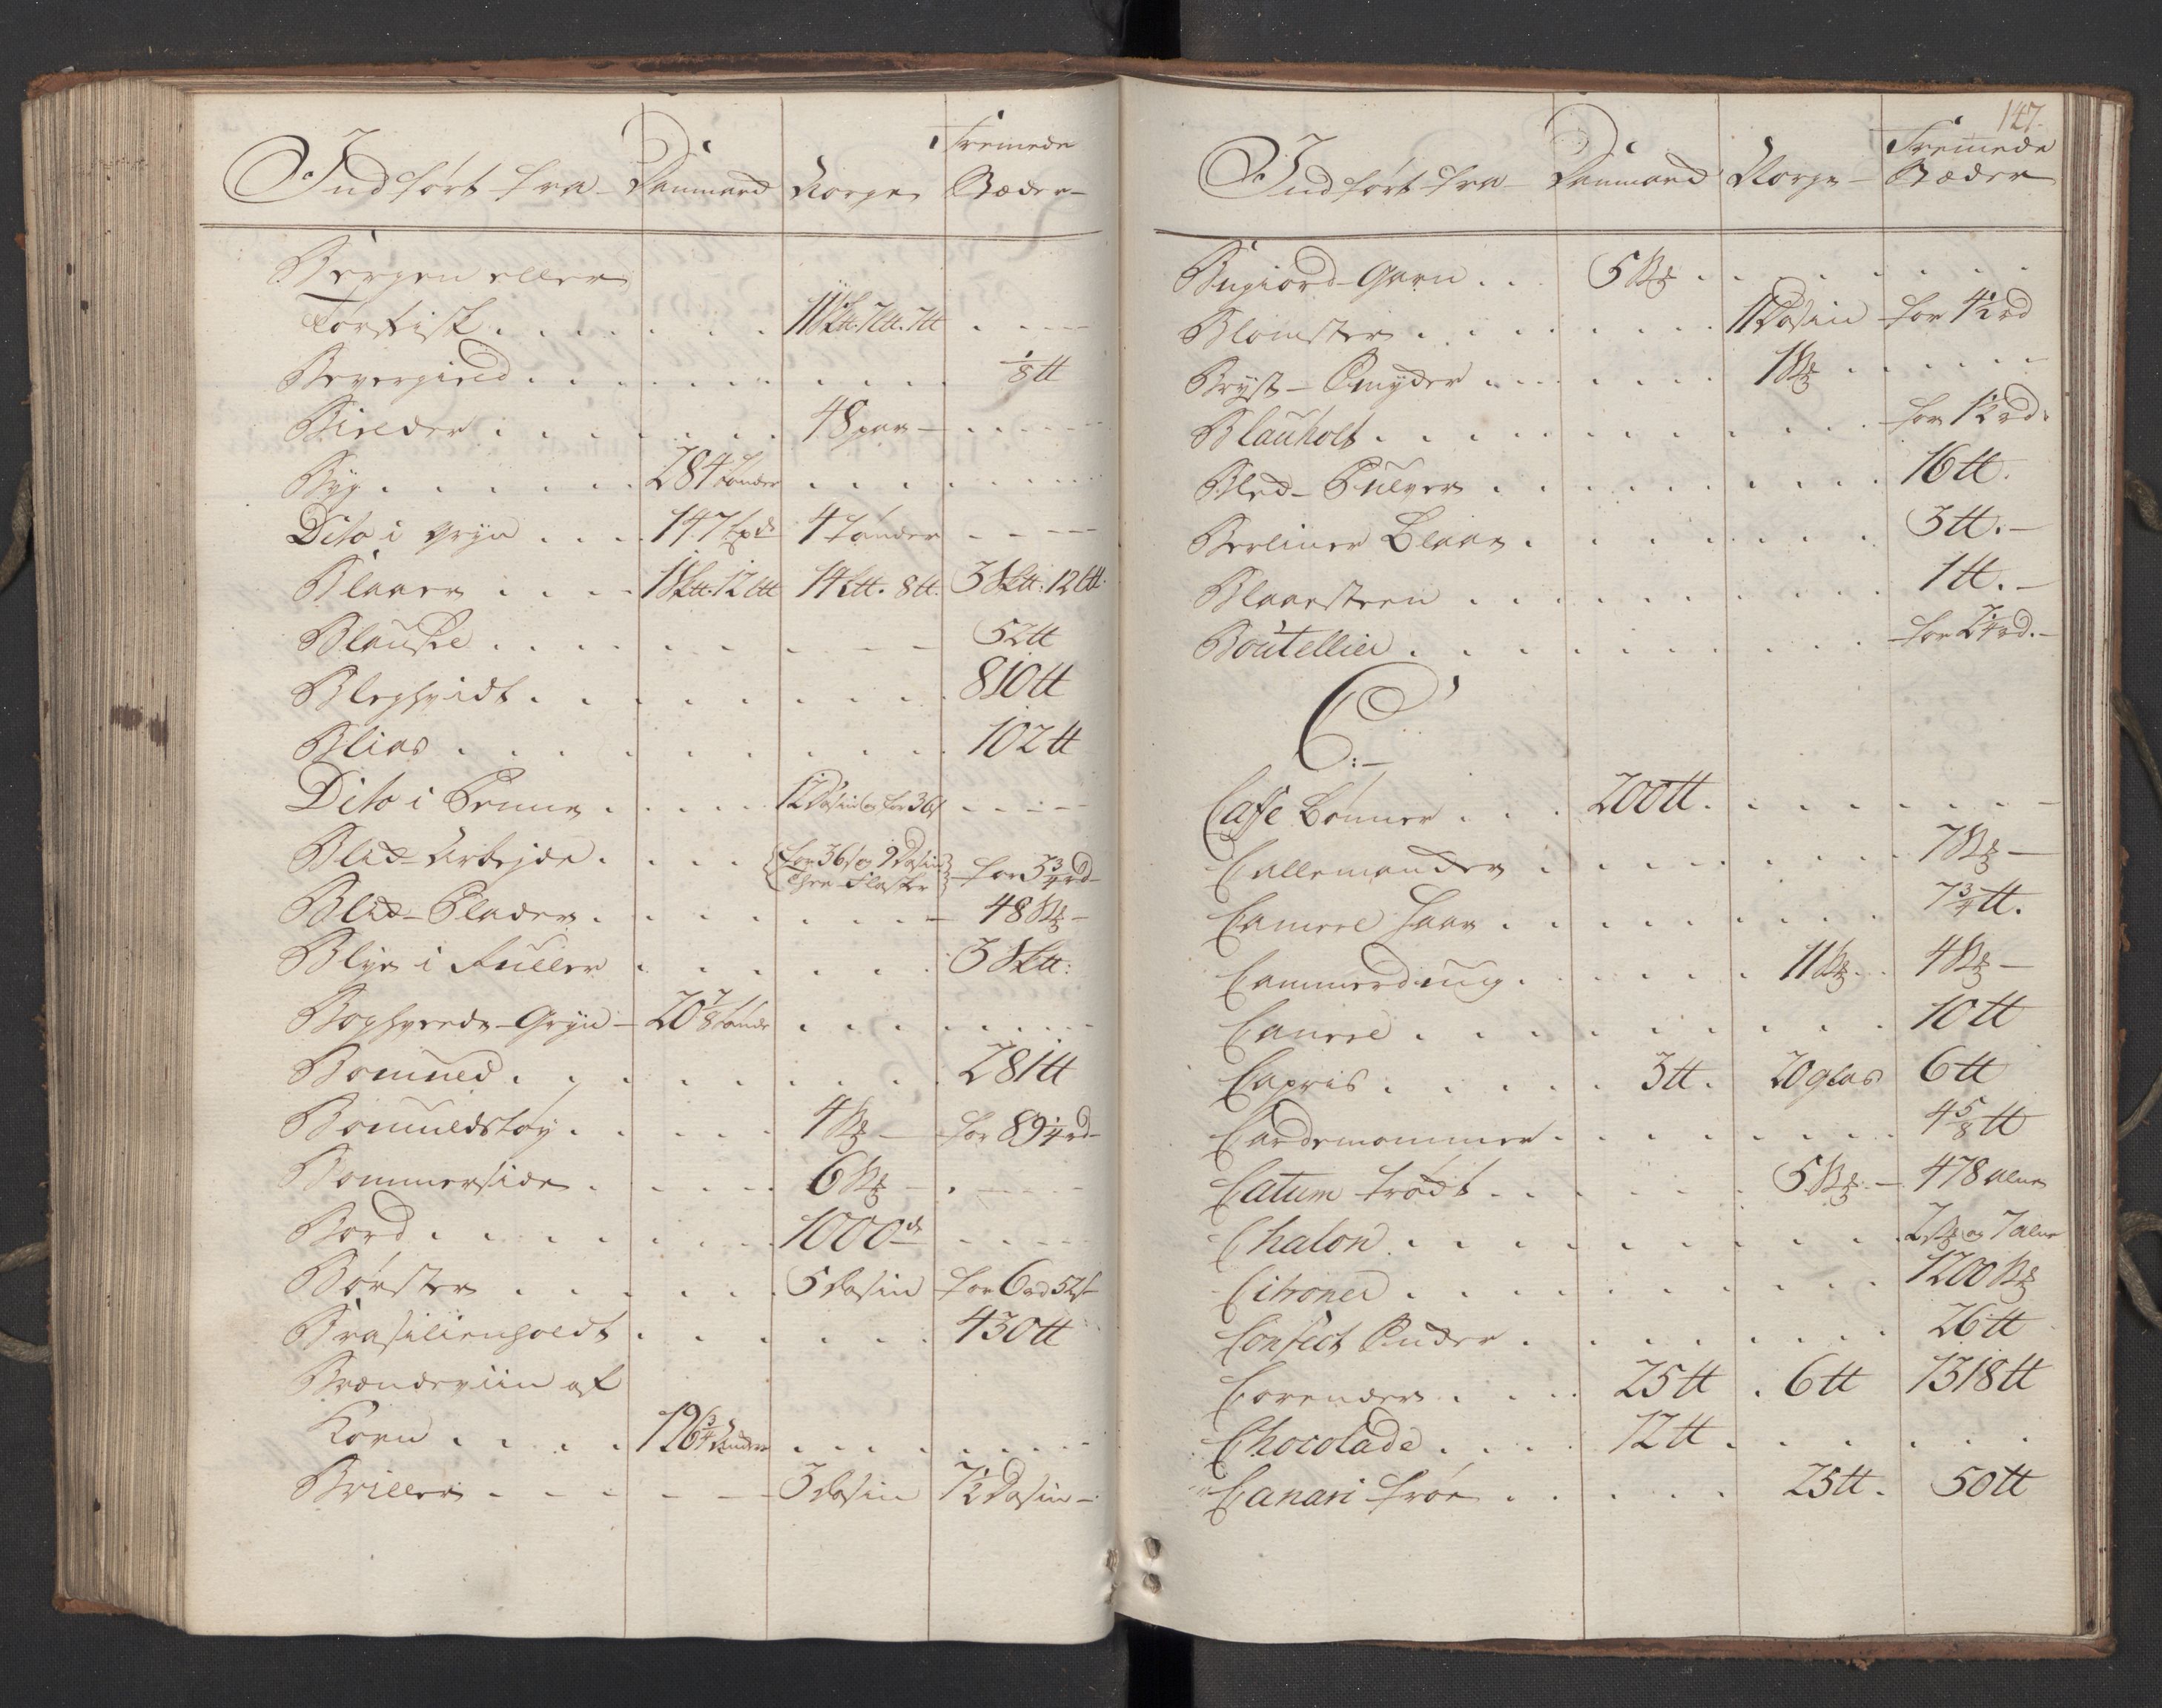 Indført fra Danmard Norge Fremede Stæder
Bergen eller
Tørfisk . . . 11 Sktt. 7 Ltt. 7 tt
Bevergield . . . 1/8 tt
Birkder . . . 48 par
Byg . . . 284 tønder
Dito i Gryn . . . 147 Lpd 4 tønder
Blaaer . . . 1 Sktt. 12 Ltt 14 Ltt. 8 tt. 3 Sktt. 12 Ltt.
Blanske . . . 52 tt
Bleghvidt . . . 810 tt
Blias . . . 102 tt
Dito i Penne . . . 12 Dosin og for 36 s
Blik-Arbejde . . . for 36 s og 9 Dosin for 3 3/4 rd
Thee-Flasker
Blik-Plader . . . 48 Stk
Blye i Ruller . . . 3 Sktt:
Boghvede-Gryn 20 7/8 tønde
Bomuld . . . 281 tt
Bomuldstøy . . . 4 Stk for 89 1/4 rd
Bommerside . . . 6 Stk
Bord . . . 1000 de
Børster . . . 5 dosin for 6 rd 52 s
Brasilienholdt . . . 430 tt
Brændeviin af
Korn . . . 126 3/4 Anker
Briller . . . 3 dosin 7 1/2 Dosin
147.
Indført fra Danmard Norge Fremede Stæder
Bugiord-Garn . . . 5 Stk
Blomster . . . 11 Dosin for 4 1/2 rd
Bryst-Smykker . . . 1 Stk
Blauholt . . . for 1 1/2 rd.
Blek-Pulver . . . 16 tt.
Berliner Blaae . . . 3 tt.
Blaaesteen . . . 1 tt.
Boutellier . . . for 2 1/4 rd.
C:
Caffe Bønner . . . 200 tt.
Callemander . . . 7 Stk
Cameel haar . . . 7 3/4 tt.
Cammerdúúg . . . 11 Stk. 4 Stk
Caneel . . . 10 tt
Capris . . . 3 tt. 20 glas 6 tt
Cardemommer . . . 4 5/8 tt
Catum trødt . . . 5 Stk. 478 alne
Chalon . . . 2 Stk og 7 alne
Citroner . . . 1200 Stk
Confect Suder . . . 26 tt
Corender . . . 25 tt . 6 tt 1318 tt
Chocolade . . . 12 tt.
Canari frøe . . . 25 tt. 50 tt